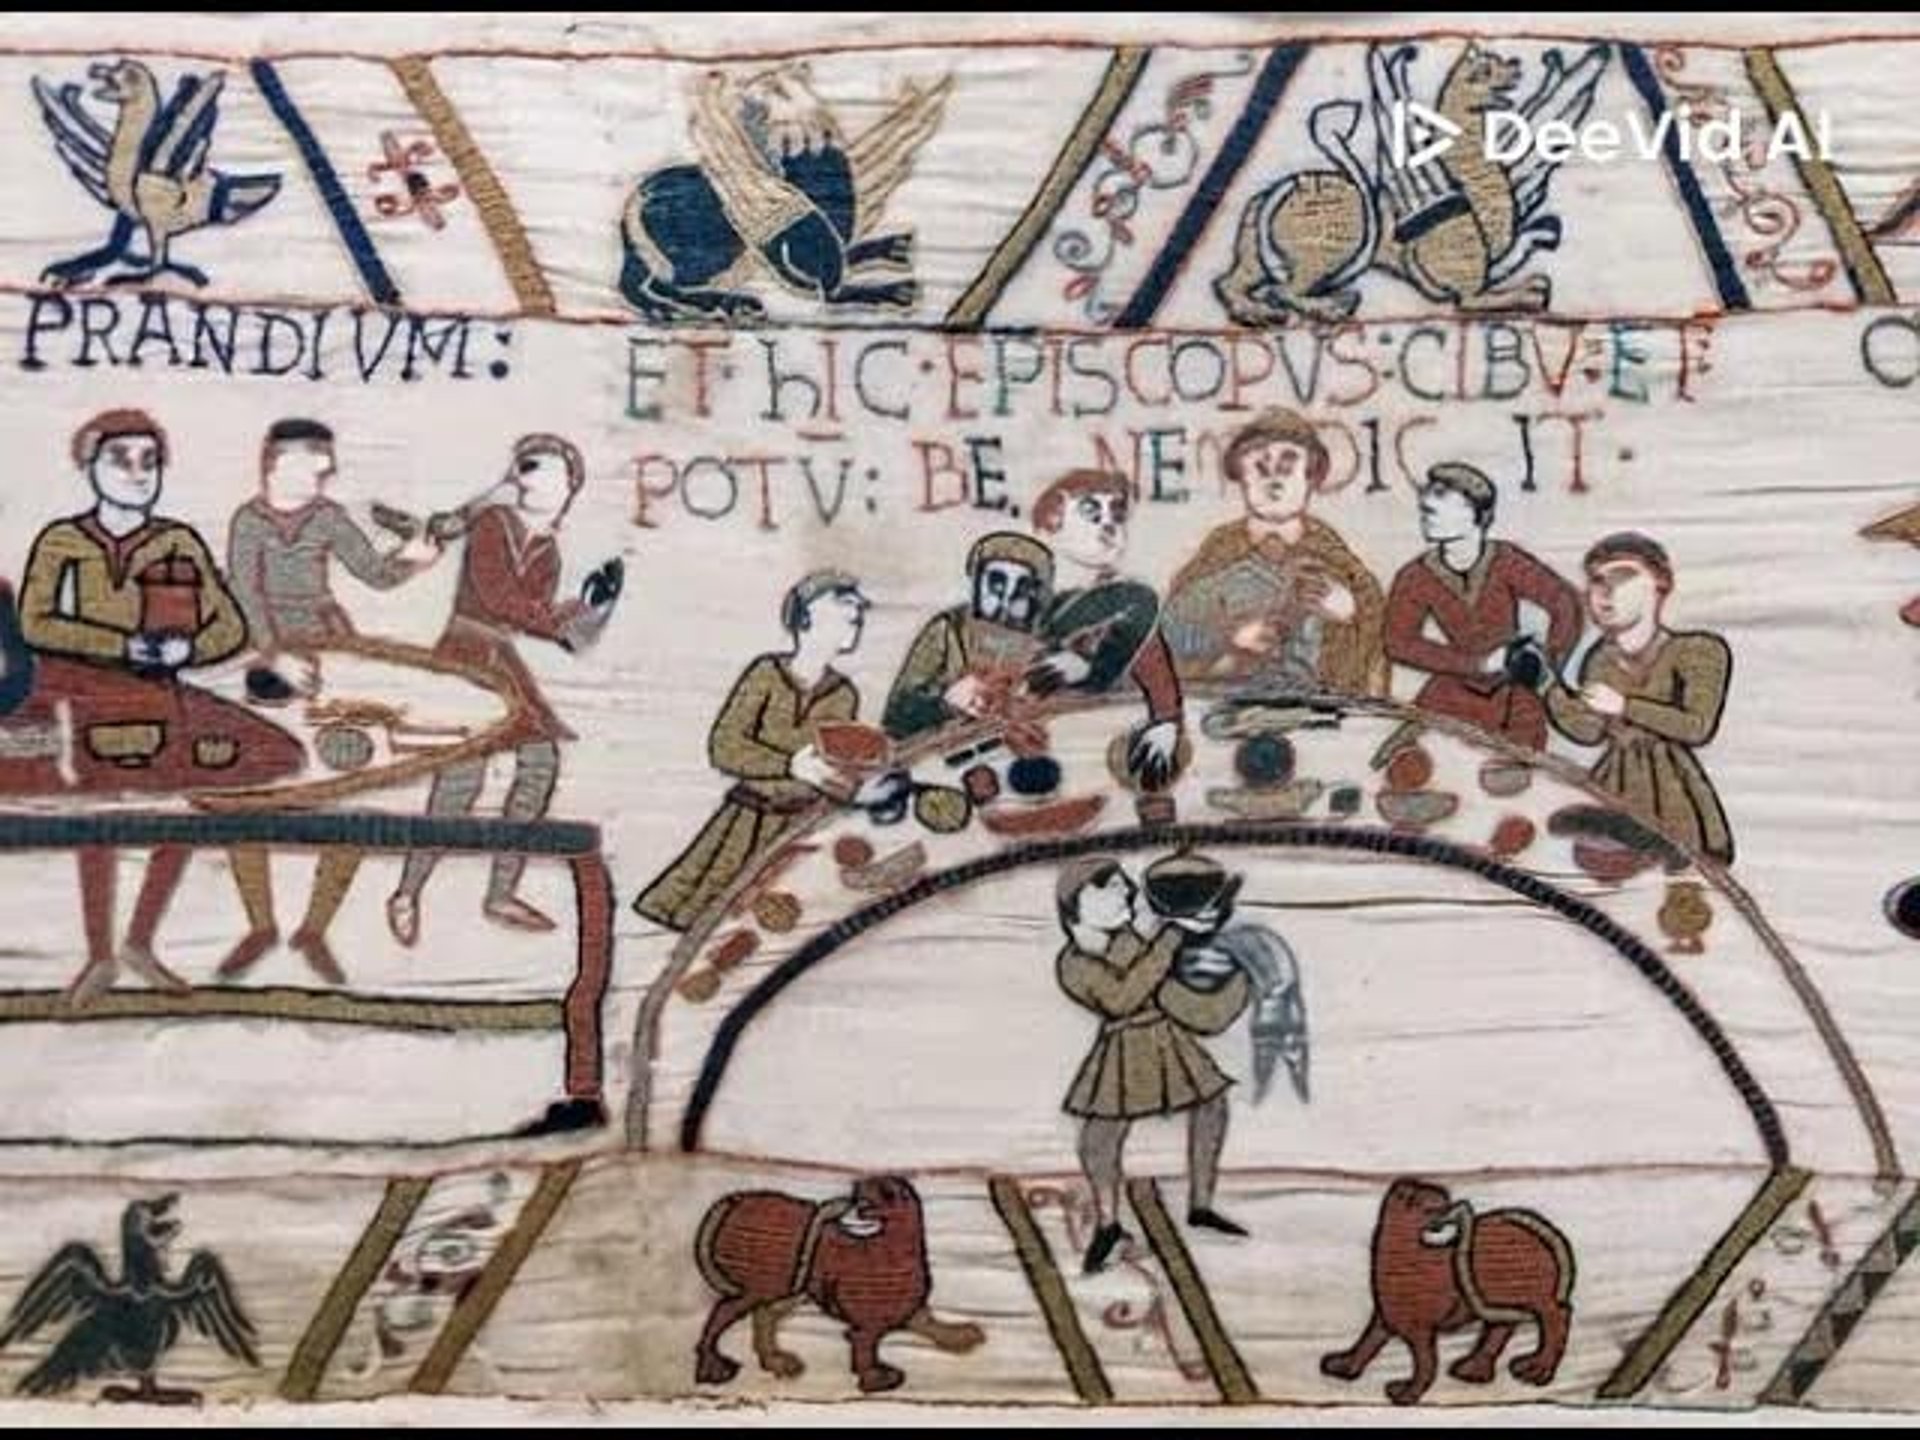 DeeVid AI
PRANDIVM:
ET· hIC·EPISCOPVS:CIBV:ET
POTV: BE. NE DIC IT·